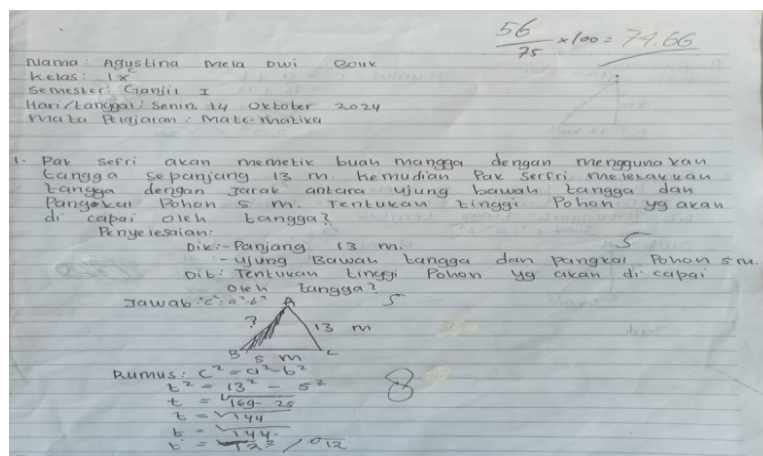 56/75 x100 = 74.66
Nama : Agustina Mela Dwi Bouk
Kelas : IX c
Semester : Ganjil I
Hari/tanggal : Senin, 14 Oktober 2024
Mata Pelajaran : Matematika
1. Pak Sefri akan memetik buah mangga dengan menggunakan
tangga sepanjang 13 m. Kemudian Pak Serfri meletakkan
tangga dengan Jarak antara ujung bawah tangga dan
Pangkal Pohon 5 m. Tentukan tinggi Pohon yg akan
di capai oleh tangga?
Penyelesaian:
Dik:- Panjang 13 m. 5
- ujung Bawah tangga dan pangkal Pohon 5 m.
Dit: Tentukan tinggi Pohon yg akan di capai
oleh tangga?
Jawab : c² = a² b² A 5
? 13 m
B 5 m. C
Rumus : c² = a² - b²
t² = 13² - 5² 8
t = √169 - 25
t = √144
t = √144.
t = 12